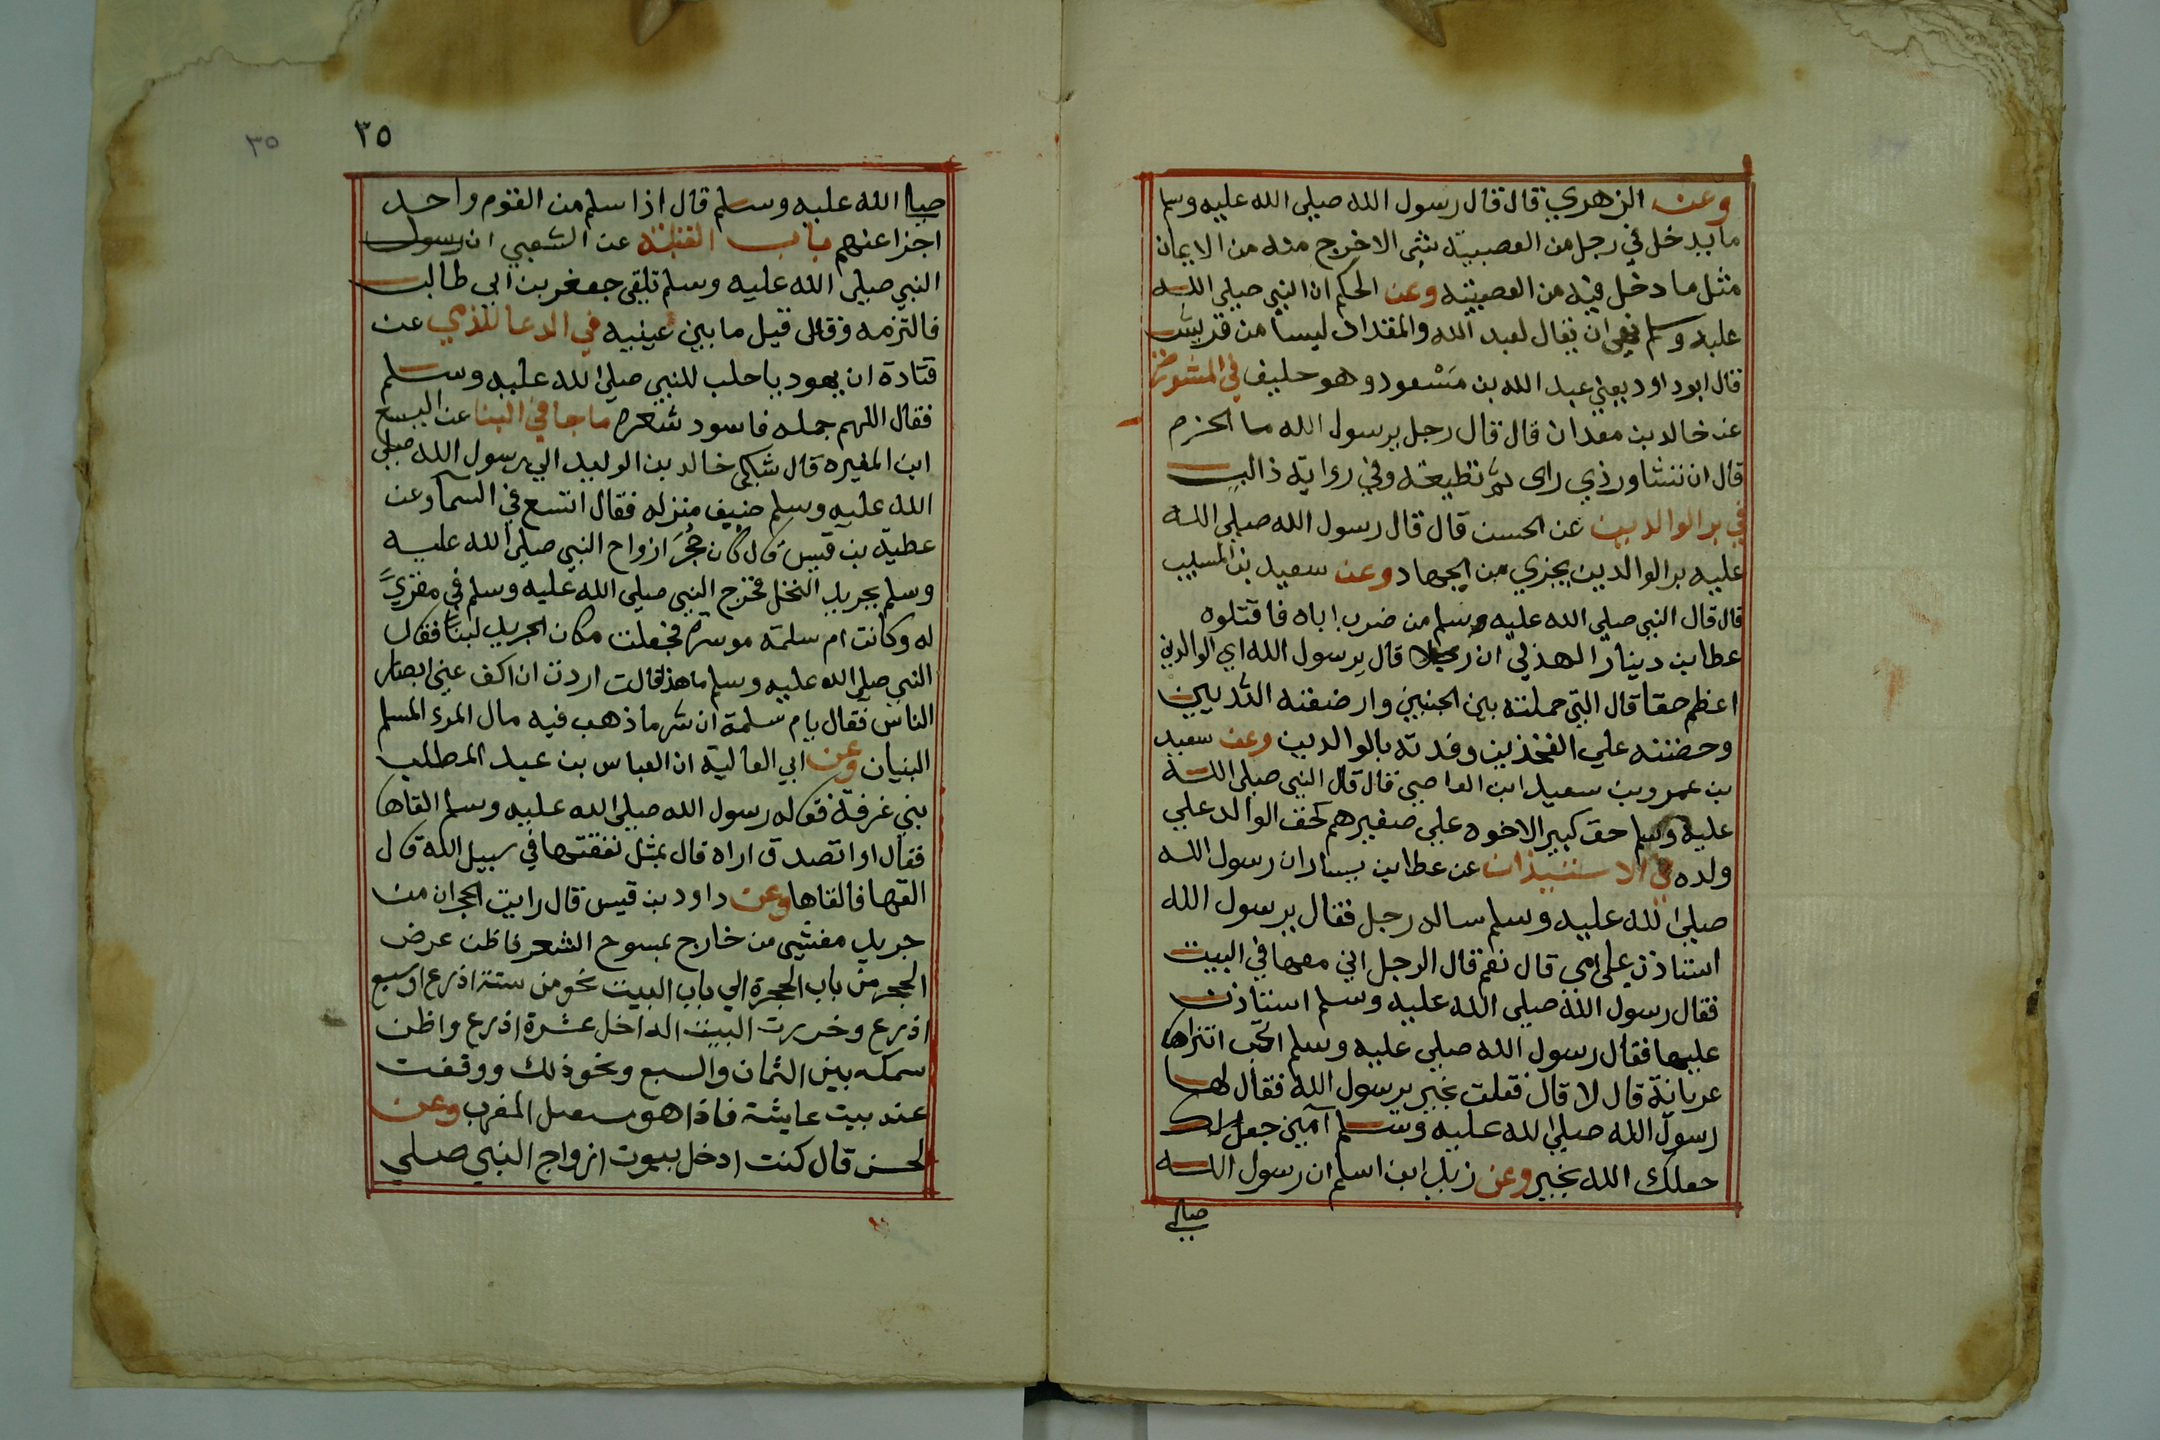 وعن الزهري قال قال رسول الله صلي الله عليه وسلم
ما يدخل في رجل من العصبية شي الاخرج منه من الايمان
مثل ما دخل فيه من العصبية وعن الحكم ان النبي صلي الله
عليه وسلم نهى ان يقال لعبد الله والمقداد ليسا من قريش
قال ابو داود يعني عبد الله بن مسعود وهو حليف في المشورة
عن خالد بن معدان قال قال رجل يرسول الله ما الحزم
قال ان تشاور ذي راى ثم تطيعه وفي رواية ذا لب
في بر الوالدين عن الحسن قال قال رسول الله صلي الله
عليه بر الوالدين يجزي من الجهاد وعن سعيد بن المسيب
قال قال النبي صلي الله عليه وسلم من ضرب اباه فاقتلوه
عطا بن دينار الهذلي ان رجلا قال يرسول الله اي الوالدين
اعظم حقا قال التي حملته بين الجنبين وارضعته الثديين
وحضنته علي الفخذين وفدته بالوالدين وعن سعيد
بن عمرو بن سعيد ابن العاصي قال قال النبي صلي الله
عليه وسلم حق كبير الاخوه علي صغيرهم كحق الوالد علي
ولده في الاستيذان عن عطا بن يسار ان رسول الله
صلي الله عليه وسلم ساله رجل فقال يرسول الله
استاذن على امي قال نعم قال الرجل اني معها في البيت
فقال رسول الله صلي الله عليه وسلم استاذن
عليها فقال رسول الله صلي عليه وسلم اتحب ان تراها
عريانة قال لا قال فعلت بخير يرسول الله فقال لها
رسول الله صلي الله عليه وسلم آمين جعل
جعلك الله بخير وعن زيد ابن اسلم ان رسول الله
صلي
٣٥
٣٥
صلي الله عليه وسلم قال اذا سلم من القوم واحد
اجزا عنهم باب القبلة عن الشعبي ان رسول
النبي صلي الله عليه وسلم تلقى جعفر بن ابي طالب
فالتزمه وقال قبل ما بين عينيه في الدعا للذمي عن
قتادة ان يهوديا حلب للنبي صلي الله عليه وسلم
فقال اللهم جمله فاسود شعره ما جا في البنا عن اليسع
ابن المغيره قال شكى خالد بن الوليد الي رسول الله صلي
الله عليه وسلم ضيق منزله فقال اتسع في السما وعن
عطية بن قيس قال كان حجر ازواج النبي صلي الله عليه
وسلم بجريد النخل فخرج النبي صلي الله عليه وسلم في مغزي
له وكانت ام سلمة موسرة فجعلت مكان الجريد لبنا فقال
النبي صلي الله عليه وسلم ما هذ قالت اردت ان اكف عني ابصار
الناس فقال يام سلمة ان شر ما ذهب فيه مال المرء المسلم
البنيان وعن ابي العالية ان العباس بن عبد المطلب
بني غرفة فقال له رسول الله صلي الله عليه وسلم القاها
فقال او اتصدق اراه قال بمثل نفقتها في سبيل الله قال
القها فالقاها وعن داود بن قيس قال رايت الحجران من
جريد مغشي من خارج بمسوح الشعر فاظن عرض
الحجر من باب الحجرة الي باب البيت نحو من ستة اذرع او سبع
اذرع وخررت البيت الداخل عشرة اذرع واظن
سمكه بين الثمان والسبع ونحو ذلك ووقفت
عند بيت عايشة فاذا هو مستقبل المغرب وعن
لحسن قال كنت ادخل بيوت ازواج النبي صلي